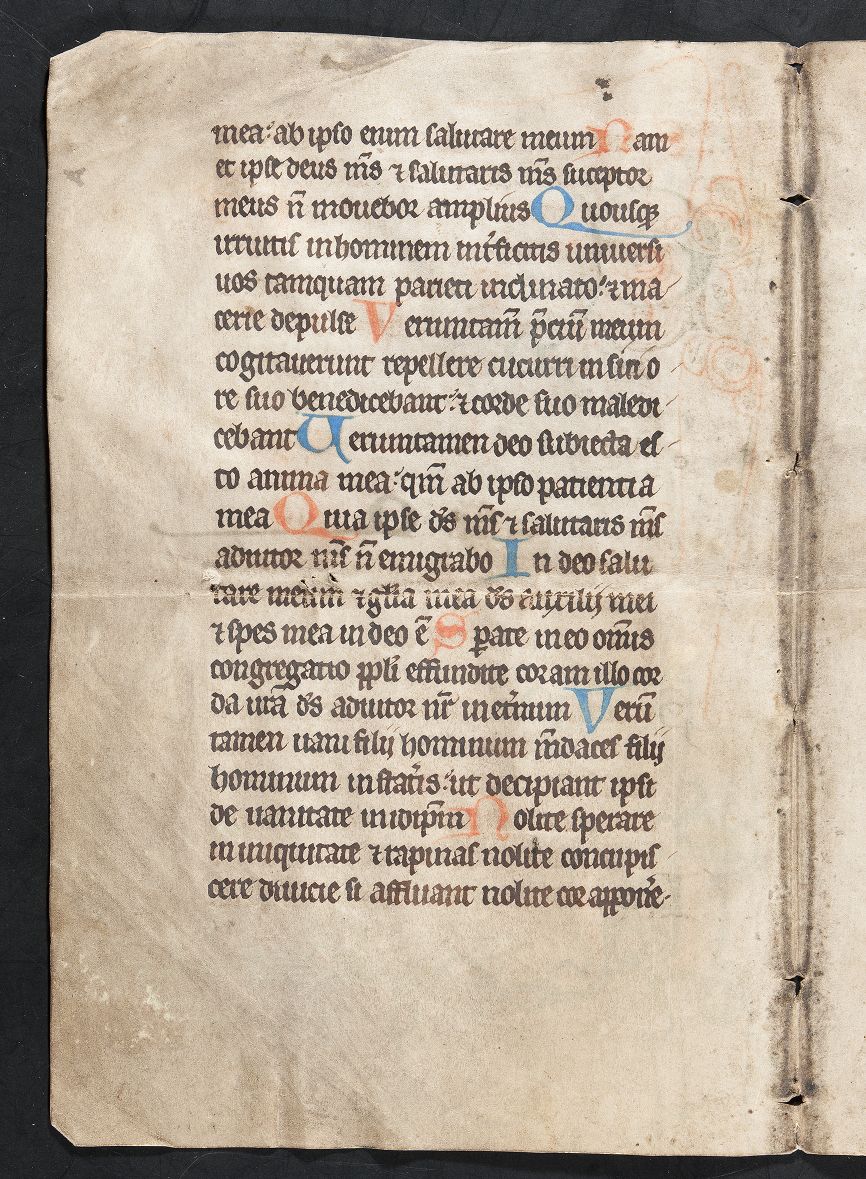 mea: ab ipso enim salutare meum Nam
et ipse deus m̅s ⁊ salutaris m̅s susceptor
meus n̅ movebor amplius Quousqꝫ
irruitis in hominem int̾ficitis universi
vos tamquam parieti inclinato: ⁊ ma
cerie depulse Verumtam̅ p̅ciu̅ meum
cogitaverunt repellere cucurri in siti o
re suo benedicebant: ⁊ corde suo maledi
cebant Verumtamen deo subiecta es
to anima mea: qm̅ ab ipso patientia
mea Quia ipse d̅s m̅s ⁊ salutaris m̅s
adiutor m̅s n̅ emigrabo In deo salu
tare meum ⁊ gl̅ia mea d̅s auxilij mei
⁊ spes mea in deo e̅ Sꝑate in eo omnis
congregatio ppl̅i effundite coram illo cor
da vr̅a d̅s adiutor nr̅ in et̾num Veru̅
tamen vani filij hominum m̅daces filij
hominum in stat̾is: ut decipiant ipsi
de vanitate in idip̅m Nolite sperare
in iniquitate ⁊ rapinas nolite concupis
cere divicie si affluant nolite cor appon̾e